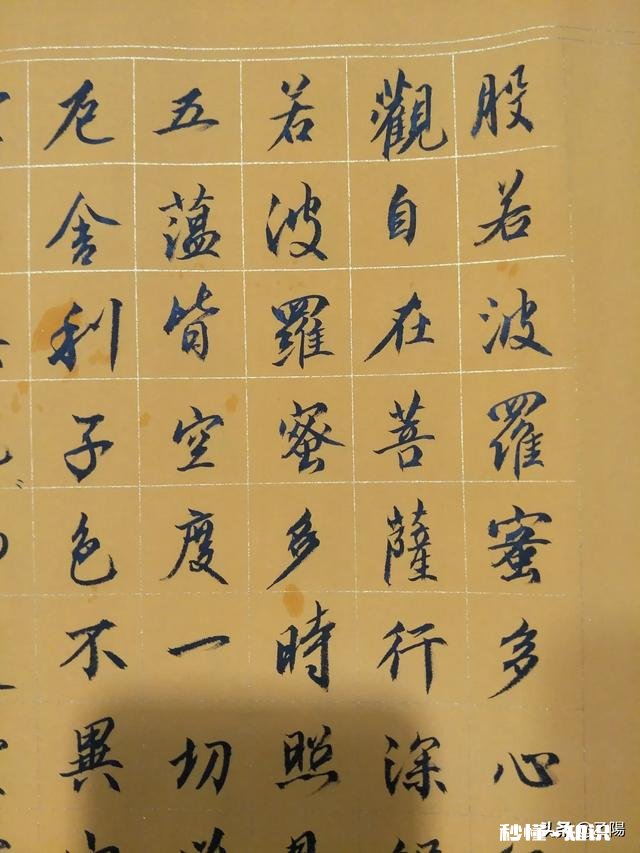 般若波羅蜜多心
觀自在菩薩行深
若波羅蜜多時照見
五薀皆空度一切
厄舍利子色不異
秒懂-知识